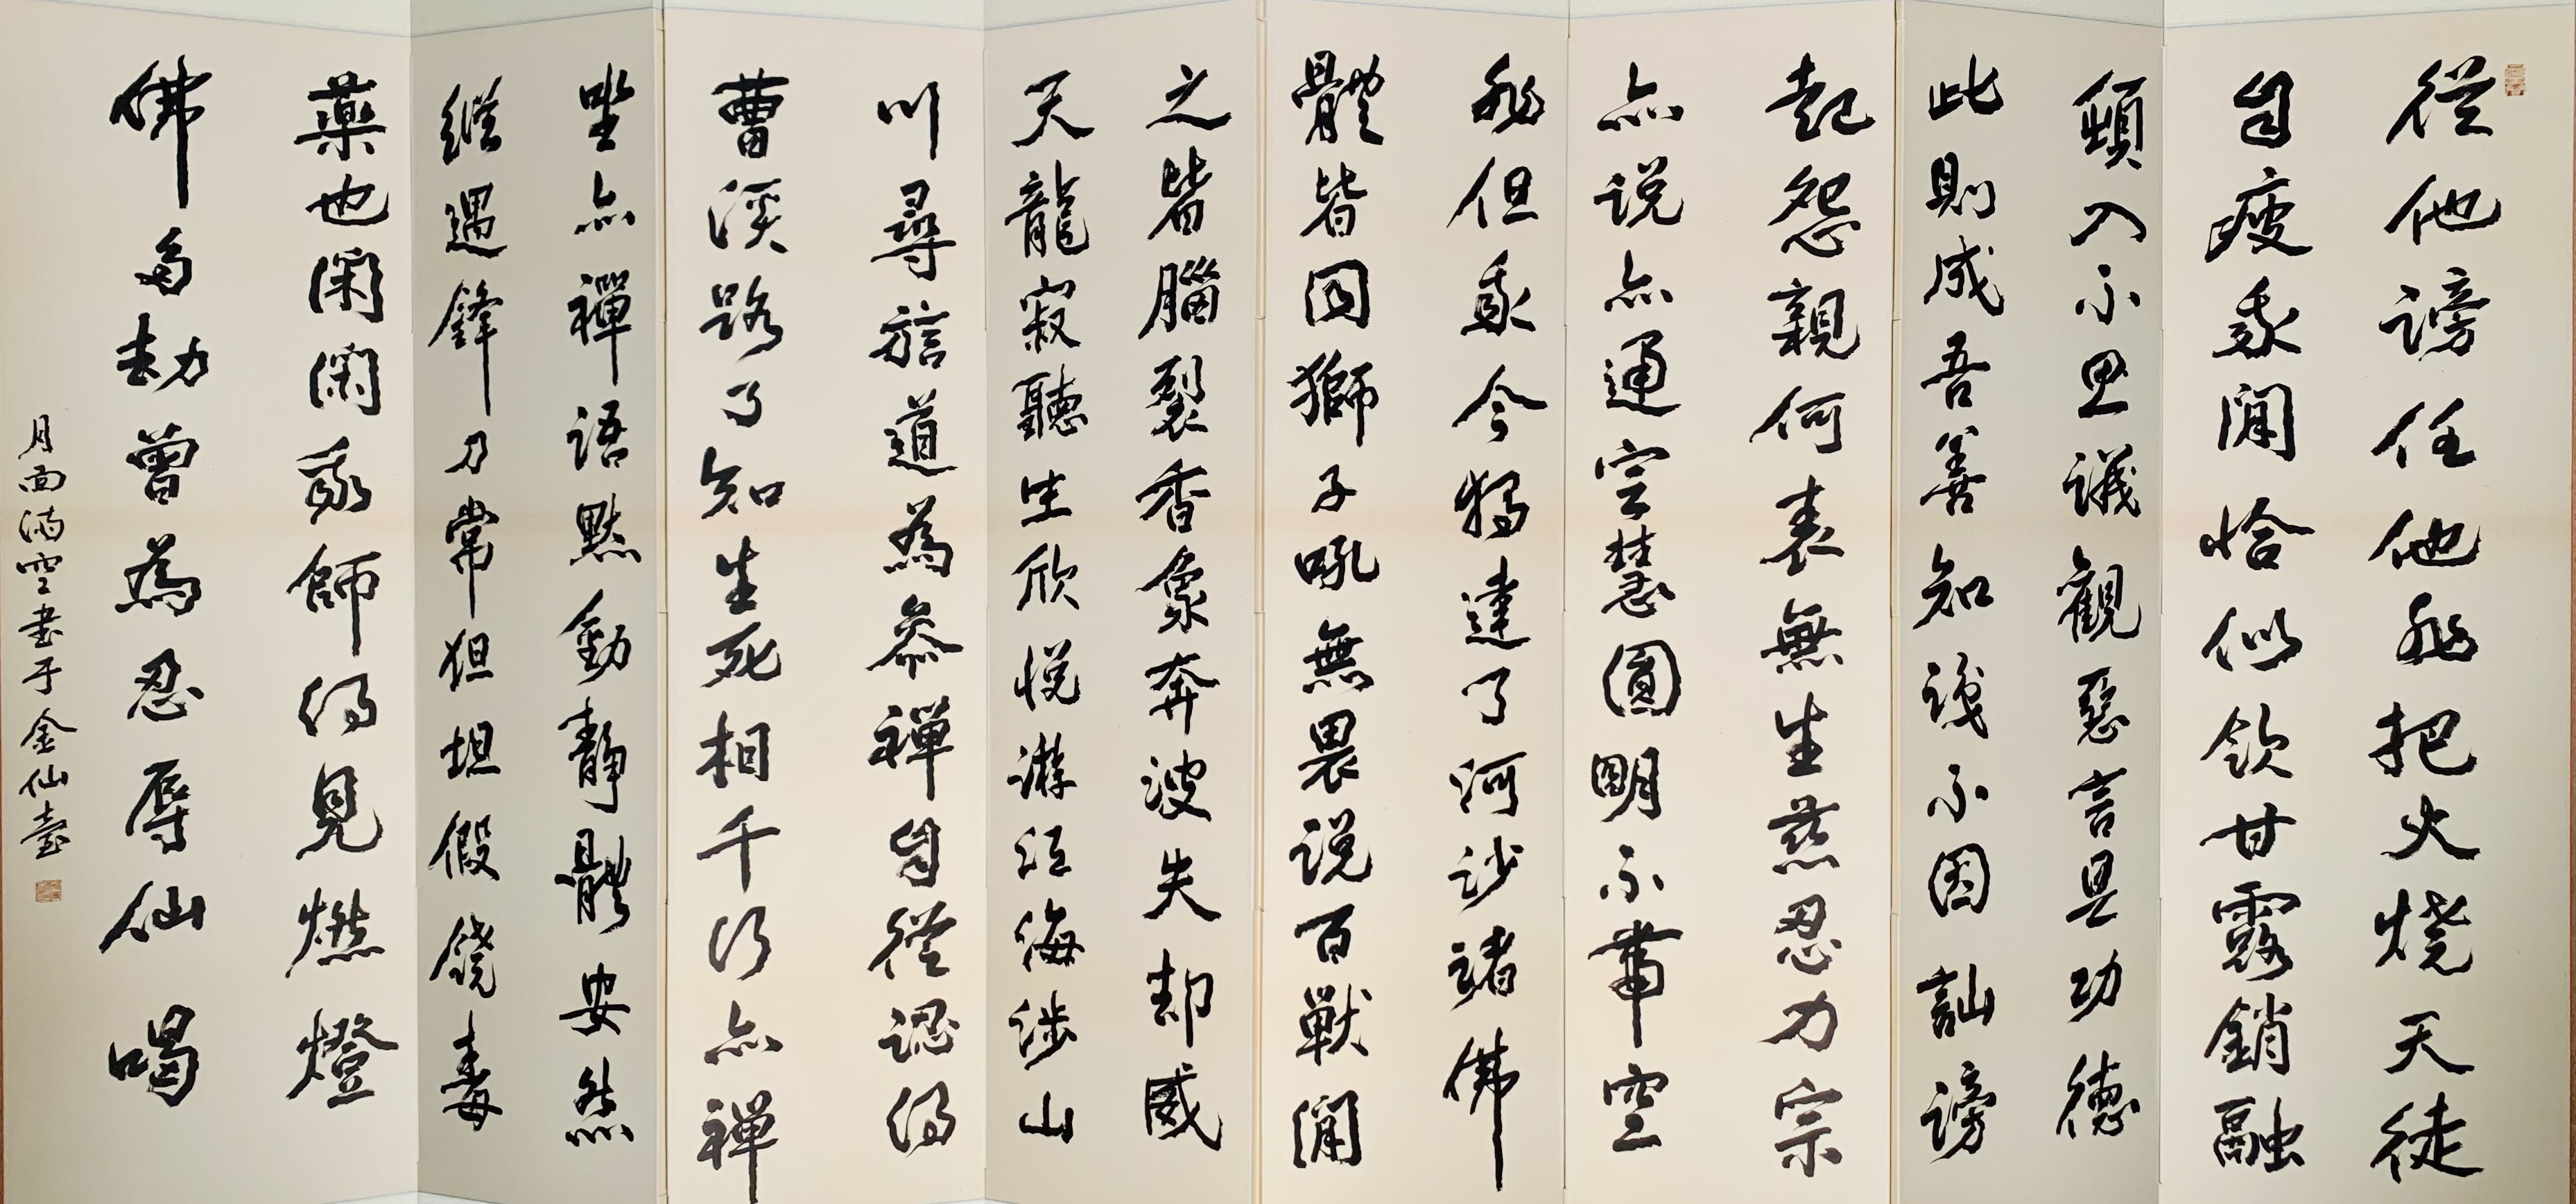 從他謗任他非把火燒天徒
自疲我聞恰似飲甘露銷融
頓入不思議觀惡言是功德
此則成吾善知識不因訕謗
起怨親何表無生慈忍力宗
亦說亦通定慧圓明不滯空
非但我今獨達了河沙諸佛
體皆同獅子吼無畏說百獸聞
之皆腦裂香象奔波失却威
天龍寂聽生欣悅游江海涉山
川尋訪道為參禪自從認得
曹溪路了知生死相千行亦禪
坐亦禪語默動靜體安然
縱遇鋒刀常坦坦假饒毒
藥也閑閑我師得見燃燈
佛多劫曾為忍辱仙喝
月面滿空書于金仙臺